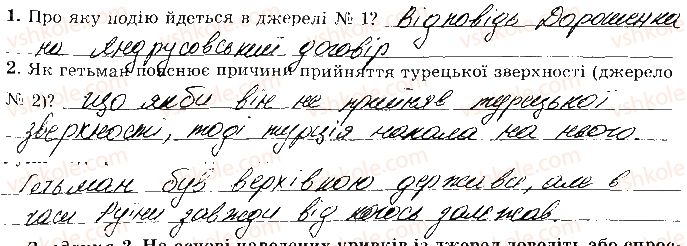 1. Про яку подію йдеться в джерелі № 1? Відповідь Дорошенка
на Андрусовський договір
2. Як гетьман пояснює причини прийняття турецької зверхності (джерело
№ 2)? Що якби він не прийняв турецької
зверхності, тоді турція напала на нього.
Гетьман був верхівкою держави, але в
часи Руїни завжди від когось залежав.